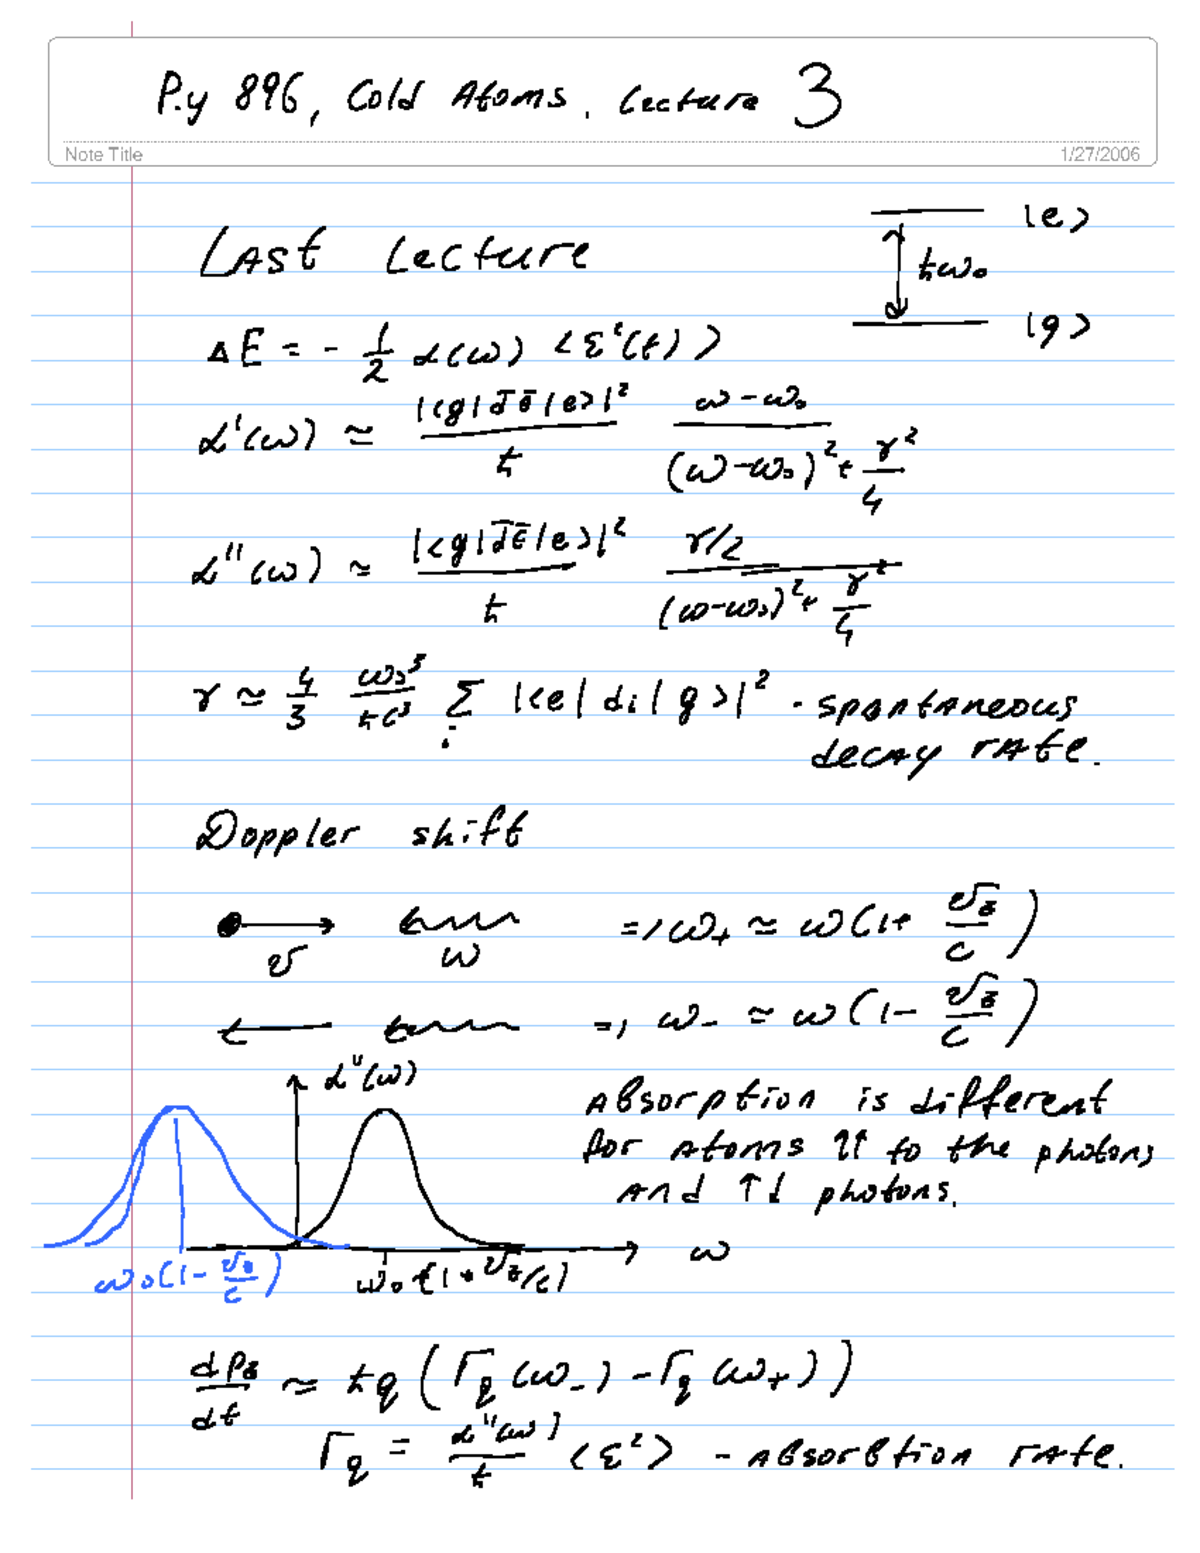 P.y 896, Cold Atoms. Lecture 3
Note Title 1/27/2006
|e>
Last Lecture
ħω₀
|g>
ΔE = - 1/2 α(ω) <ε²(t)>
α'(ω) ≃ |<g|d̄ε̄|e>|²/ħ (ω-ω₀)/((ω-ω₀)² + γ²/4)
α''(ω) ≃ |<g|d̄ε̄|e>|²/ħ (γ/2)/((ω-ω₀)² + γ²/4)
γ ≃ 4/3 ω₀³/ħc³ Σᵢ |<e|dᵢ|g>|² - spontaneous
decay rate.
Doppler shift
v ω => ω₊ ≃ ω(1+ v_z/c)
=> ω₋ ≃ ω(1- v_z/c)
α''(ω)
Absorption is different
for atoms ↑↑ to the photons
and ↑↓ photons.
ω
ω₀(1- v_z/c) ω₀(1+v_z/c)
dp_z/dt ≃ ħq (Γ_q(ω₋) - Γ_q(ω₊))
Γ_q = α''(ω)/ħ <ε²> - absorbtion rate.